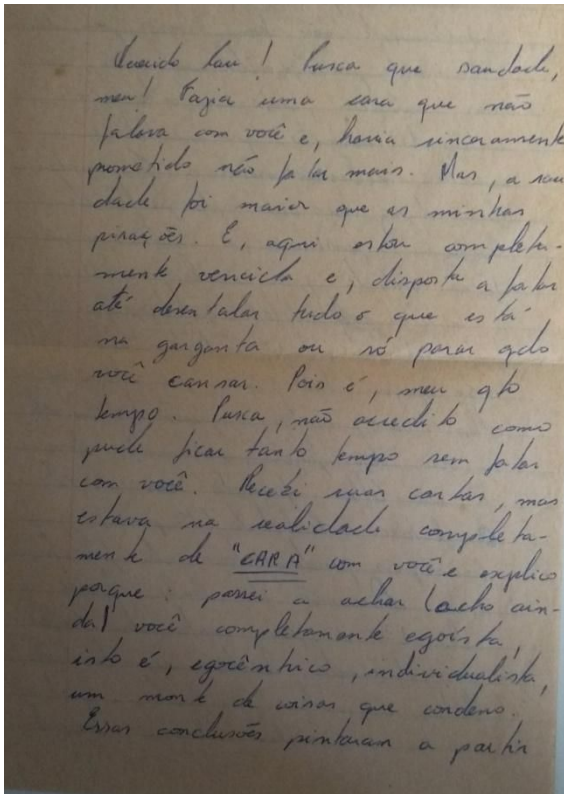 Querido Lau! Pusca que saudade,
meu! Fazia uma cara que não
falava com você e, havia sinceramente
prometido não falar mais. Mas, a sau
dade foi maior que as minhas
pirações. E, aqui estou completa-
mente vencida e, disposta a falar
até desentalar tudo o que está
na garganta ou só parar qdo
você cansar. Pois é, meu qto
tempo. Pusca, não acredito como
pude ficar tanto tempo sem falar
com você. Recebi suas cartas, mas
estava na realidade completa-
mente de "CARA" com você e explico
porque: passei a achar (acho ain-
da) você completamente egoísta,
isto é, egocêntrico, individualista,
um monte de coisas que condeno.
Essas conclusões pintaram a partir